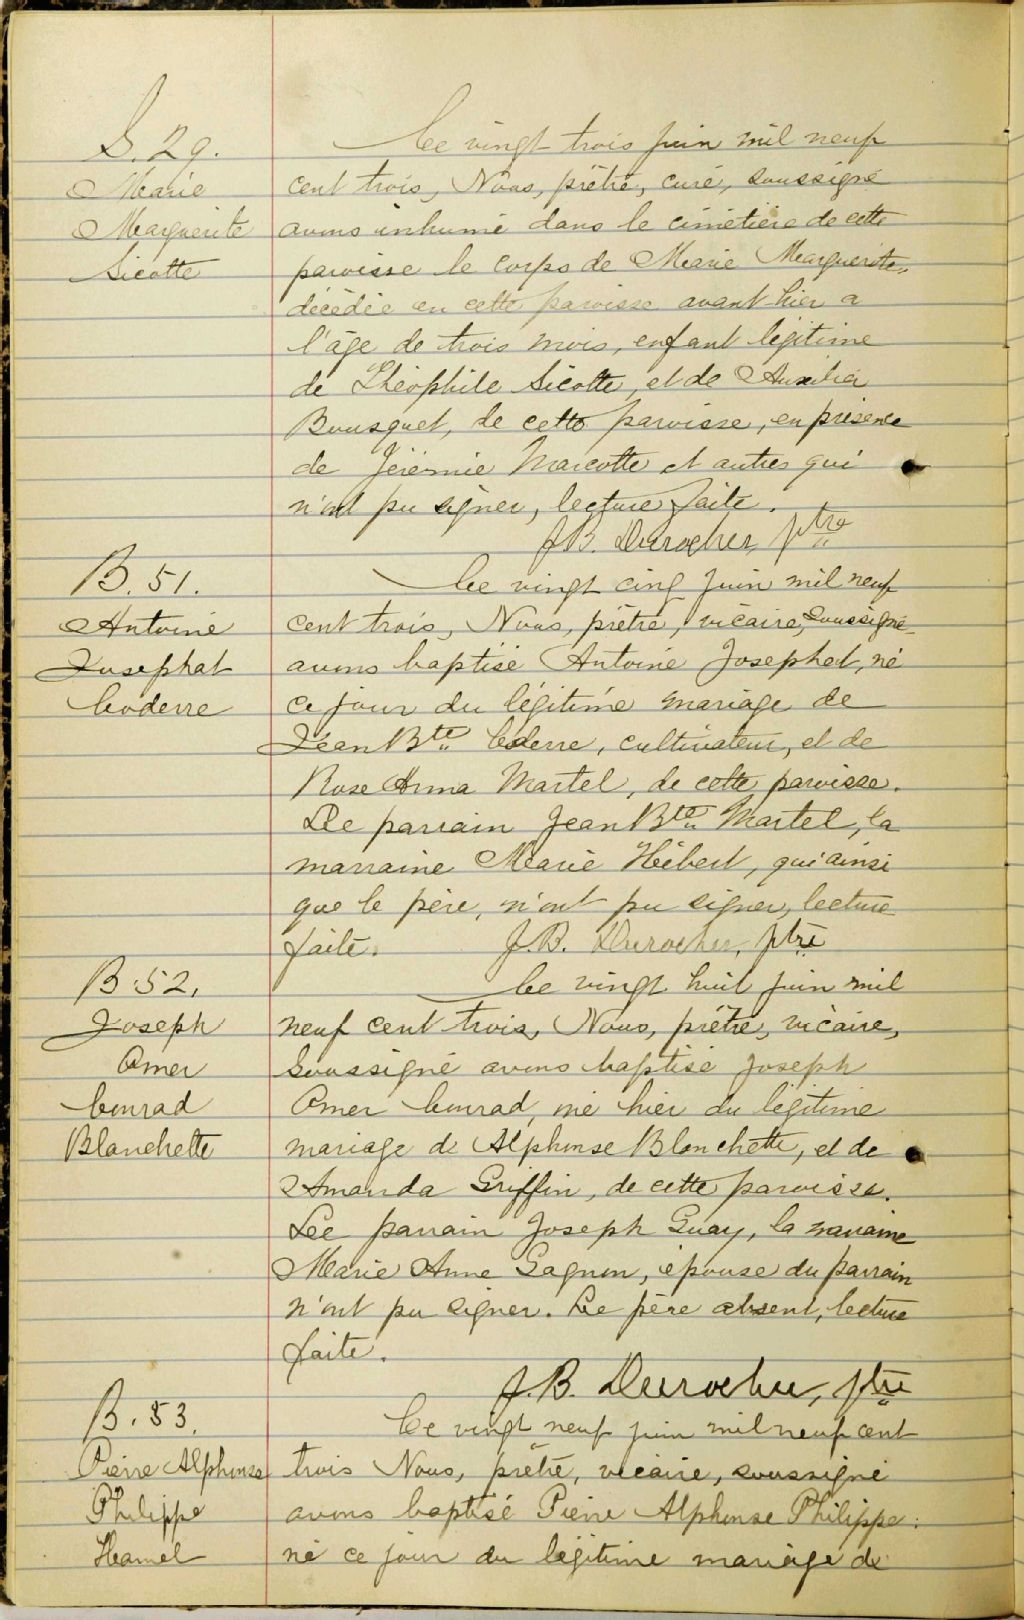 S. 29.
Marie
Marguerite
Sicotte
Ce vingt trois juin mil neuf
cent trois, Nous, prêtre, curé, soussigné
avons inhumé dans le cimetière de cette
paroisse le corps de Marie Marguerite,
décédée en cette paroisse avant hier a
l'âge de trois mois, enfant légitime
de Théophile Sicotte, et de Auxilia
Bousquet, de cette paroisse, en présence
de Jérémie Marcotte et autres qui
n'ont pu signer, lecture faite.
J.B. Durocher, ptre
B. 51.
Antoine
Josephat
Coderre
Ce vingt cinq juin mil neuf
cent trois, Nous, prêtre, vicaire, soussigné
avons baptisé Antoine Josephat, né
ce jour du légitime mariage de
Jean Bte Coderre, cultivateur, et de
Rose Anna Martel, de cette paroisse.
Le parrain Jean Bte Martel, la
marraine Marie Hébert, qui ainsi
que le père, n'ont pu signer, lecture
faite. J.B. Durocher, ptre
B. 52.
Joseph
Omer
Conrad
Blanchette
Ce vingt huit juin mil
neuf cent trois, Nous, prêtre, vicaire,
soussigné avons baptisé Joseph
Omer Conrad, né hier du légitime
mariage de Alphonse Blanchette, et de
Amanda Griffin, de cette paroisse.
Le parrain Joseph Guay, la marraine
Marie Anne Gagnon, épouse du parrain
n'ont pu signer. Le père absent, lecture
faite.
J.B. Durocher, ptre
B. 53.
Pierre Alphonse
Philippe
Hamel
Ce vingt neuf juin mil neuf cent
trois Nous, prêtre, vicaire, soussigné
avons baptisé Pierre Alphonse Philippe
né ce jour du légitime mariage de